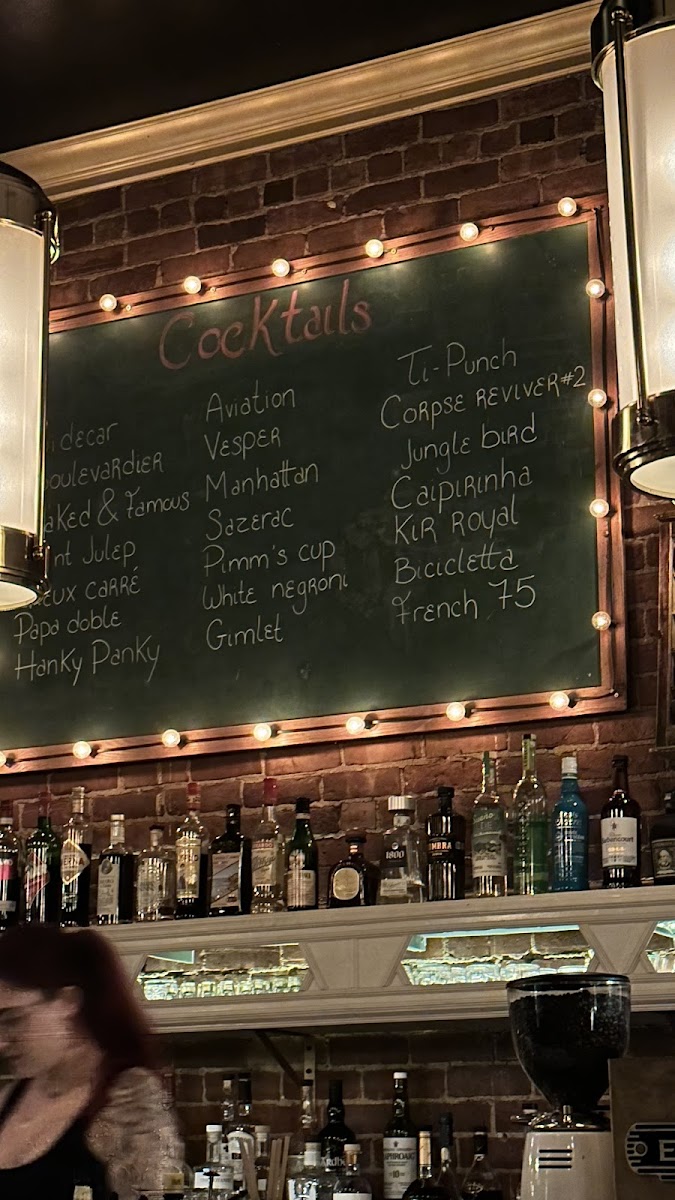 Cocktails
idecar
oulevardier
aked & Famous
nt Julep
eux carré
Papa doble
Hanky Panky
Aviation
Vesper
Manhattan
Sazerac
Pimm's cup
White negroni
Gimlet
Ti-Punch
Corpse reviver #2
Jungle bird
Caipirinha
Kir Royal
Bicicletta
French 75
1800
10
E